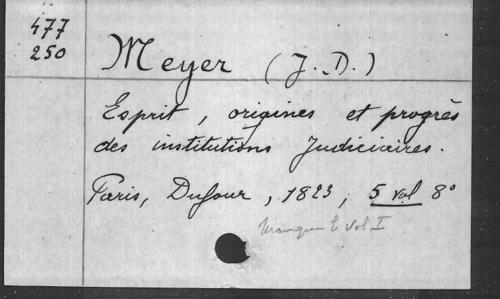 477
250
Meyer (J. D.)
Esprit, origines et progrès
des institutions Judiciaires.
Paris, Dufour, 1823, 5 vol 8°
Manque le vol I